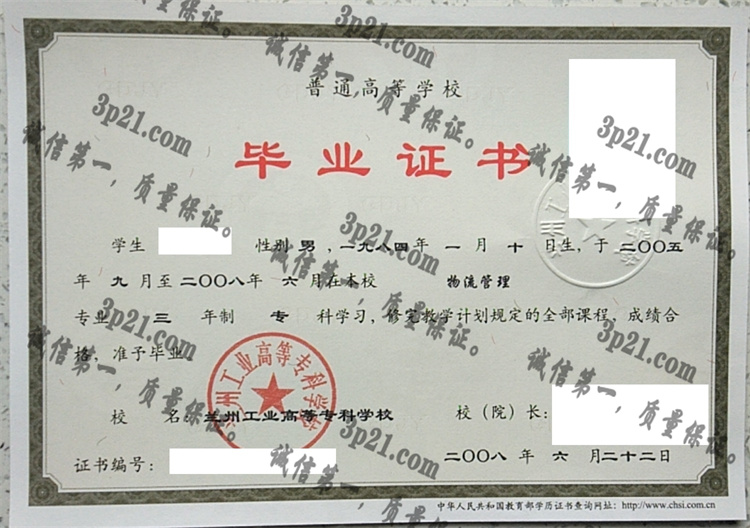 普通高等学校
毕业证书
学生 性别 男，一九八四年 一 月 十 日生，于 二〇〇五
年 九 月至 二〇〇八年 六 月在本校 物流管理
专业 三 年制 专 科学习，修完教学计划规定的全部课程，成绩合
格，准予毕业。
校 名：兰州工业高等专科学校 校（院）长：
证书编号： 二〇〇八 年 六 月二十二日
中华人民共和国教育部学历证书查询网址：http://www.chsi.com.cn
兰州工业高等专科学校
3p21.com
诚信第一，质量保证。